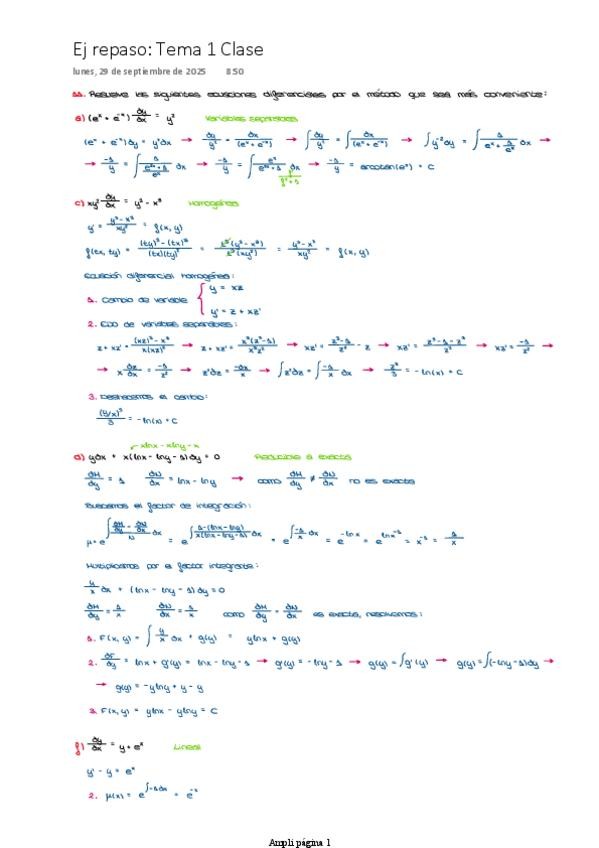 Ej repaso: Tema 1 Clase
lunes, 29 de septiembre de 2025 8:50
11. Resuelve las siguientes ecuaciones diferenciales por el método que sea más conveniente:
a) (eˣ + e⁻ˣ) dy/dx = y² Variables separables
(eˣ + e⁻ˣ)dy = y²dx → dy/y² = dx/(eˣ + e⁻ˣ) → ∫ dy/y² = ∫ dx/(eˣ + e⁻ˣ) → ∫ y⁻² dy = ∫ 1/(eˣ + 1/eˣ) dx →
→ -1/y = ∫ 1/((e²ˣ + 1)/eˣ) dx → -1/y = ∫ eˣ/(e²ˣ + 1) dx → -1/y = arcotan(eˣ) + C
f'/(f² + 1)
c) xy² dy/dx = y³ - x³ Homogénea
y' = (y³ - x³)/xy² = f(x, y)
f(tx, ty) = ((ty)³ - (tx)³)/((tx)(ty)²) = t³(y³ - x³)/t³(xy²) = (y³ - x³)/xy² = f(x, y)
Ecuación diferencial homogénea:
1. Cambio de variable { y = xz
y' = z + xz'
2. EDO de variables separables:
z + xz' = ((xz)³ - x³)/(x(xz)²) → z + xz' = x³(z³ - 1)/x³z² → xz' = (z³ - 1)/z² - z → xz' = (z³ - 1 - z³)/z² → xz' = -1/z² →
→ x dz/dx = -1/z² → z²dz = -dx/x → ∫ z²dz = ∫ -1/x dx → z³/3 = -ln(x) + C
3. Deshacemos el cambio:
(y/x)³/3 = -ln(x) + C
xlnx - xlny - x
d) ydx + x(lnx - lny - 1)dy = 0 Reducible a exacta
∂M/∂y = 1 ∂N/∂x = lnx - lny → como ∂M/∂y ≠ ∂N/∂x no es exacta
Buscamos el factor de integración:
μ = e^∫ (∂M/∂y - ∂N/∂x)/N dx = e^∫ (1-(lnx - lny))/(x(lnx - lny - 1)) dx = e^∫ -1/x dx = e^-lnx = e^lnx⁻¹ = x⁻¹ = 1/x
Multiplicamos por el factor integrante:
y/x dx + (lnx - lny - 1)dy = 0
∂M/∂y = 1/x ∂N/∂x = 1/x como ∂M/∂y = ∂N/∂x es exacta, resolvemos:
1. F(x, y) = ∫ y/x dx + g(y) = ylnx + g(y)
2. ∂F/∂y = lnx + g'(y) = lnx - lny - 1 → g'(y) = -lny - 1 → g(y) = ∫ g'(y) → g(y) = ∫(-lny - 1)dy →
→ g(y) = -ylny + y - y
3. F(x, y) = ylnx - ylny = C
f) dy/dx = y + eˣ Lineal
y' - y = eˣ
2. μ(x) = e^∫-1dx = e⁻ˣ
Ampli página 1